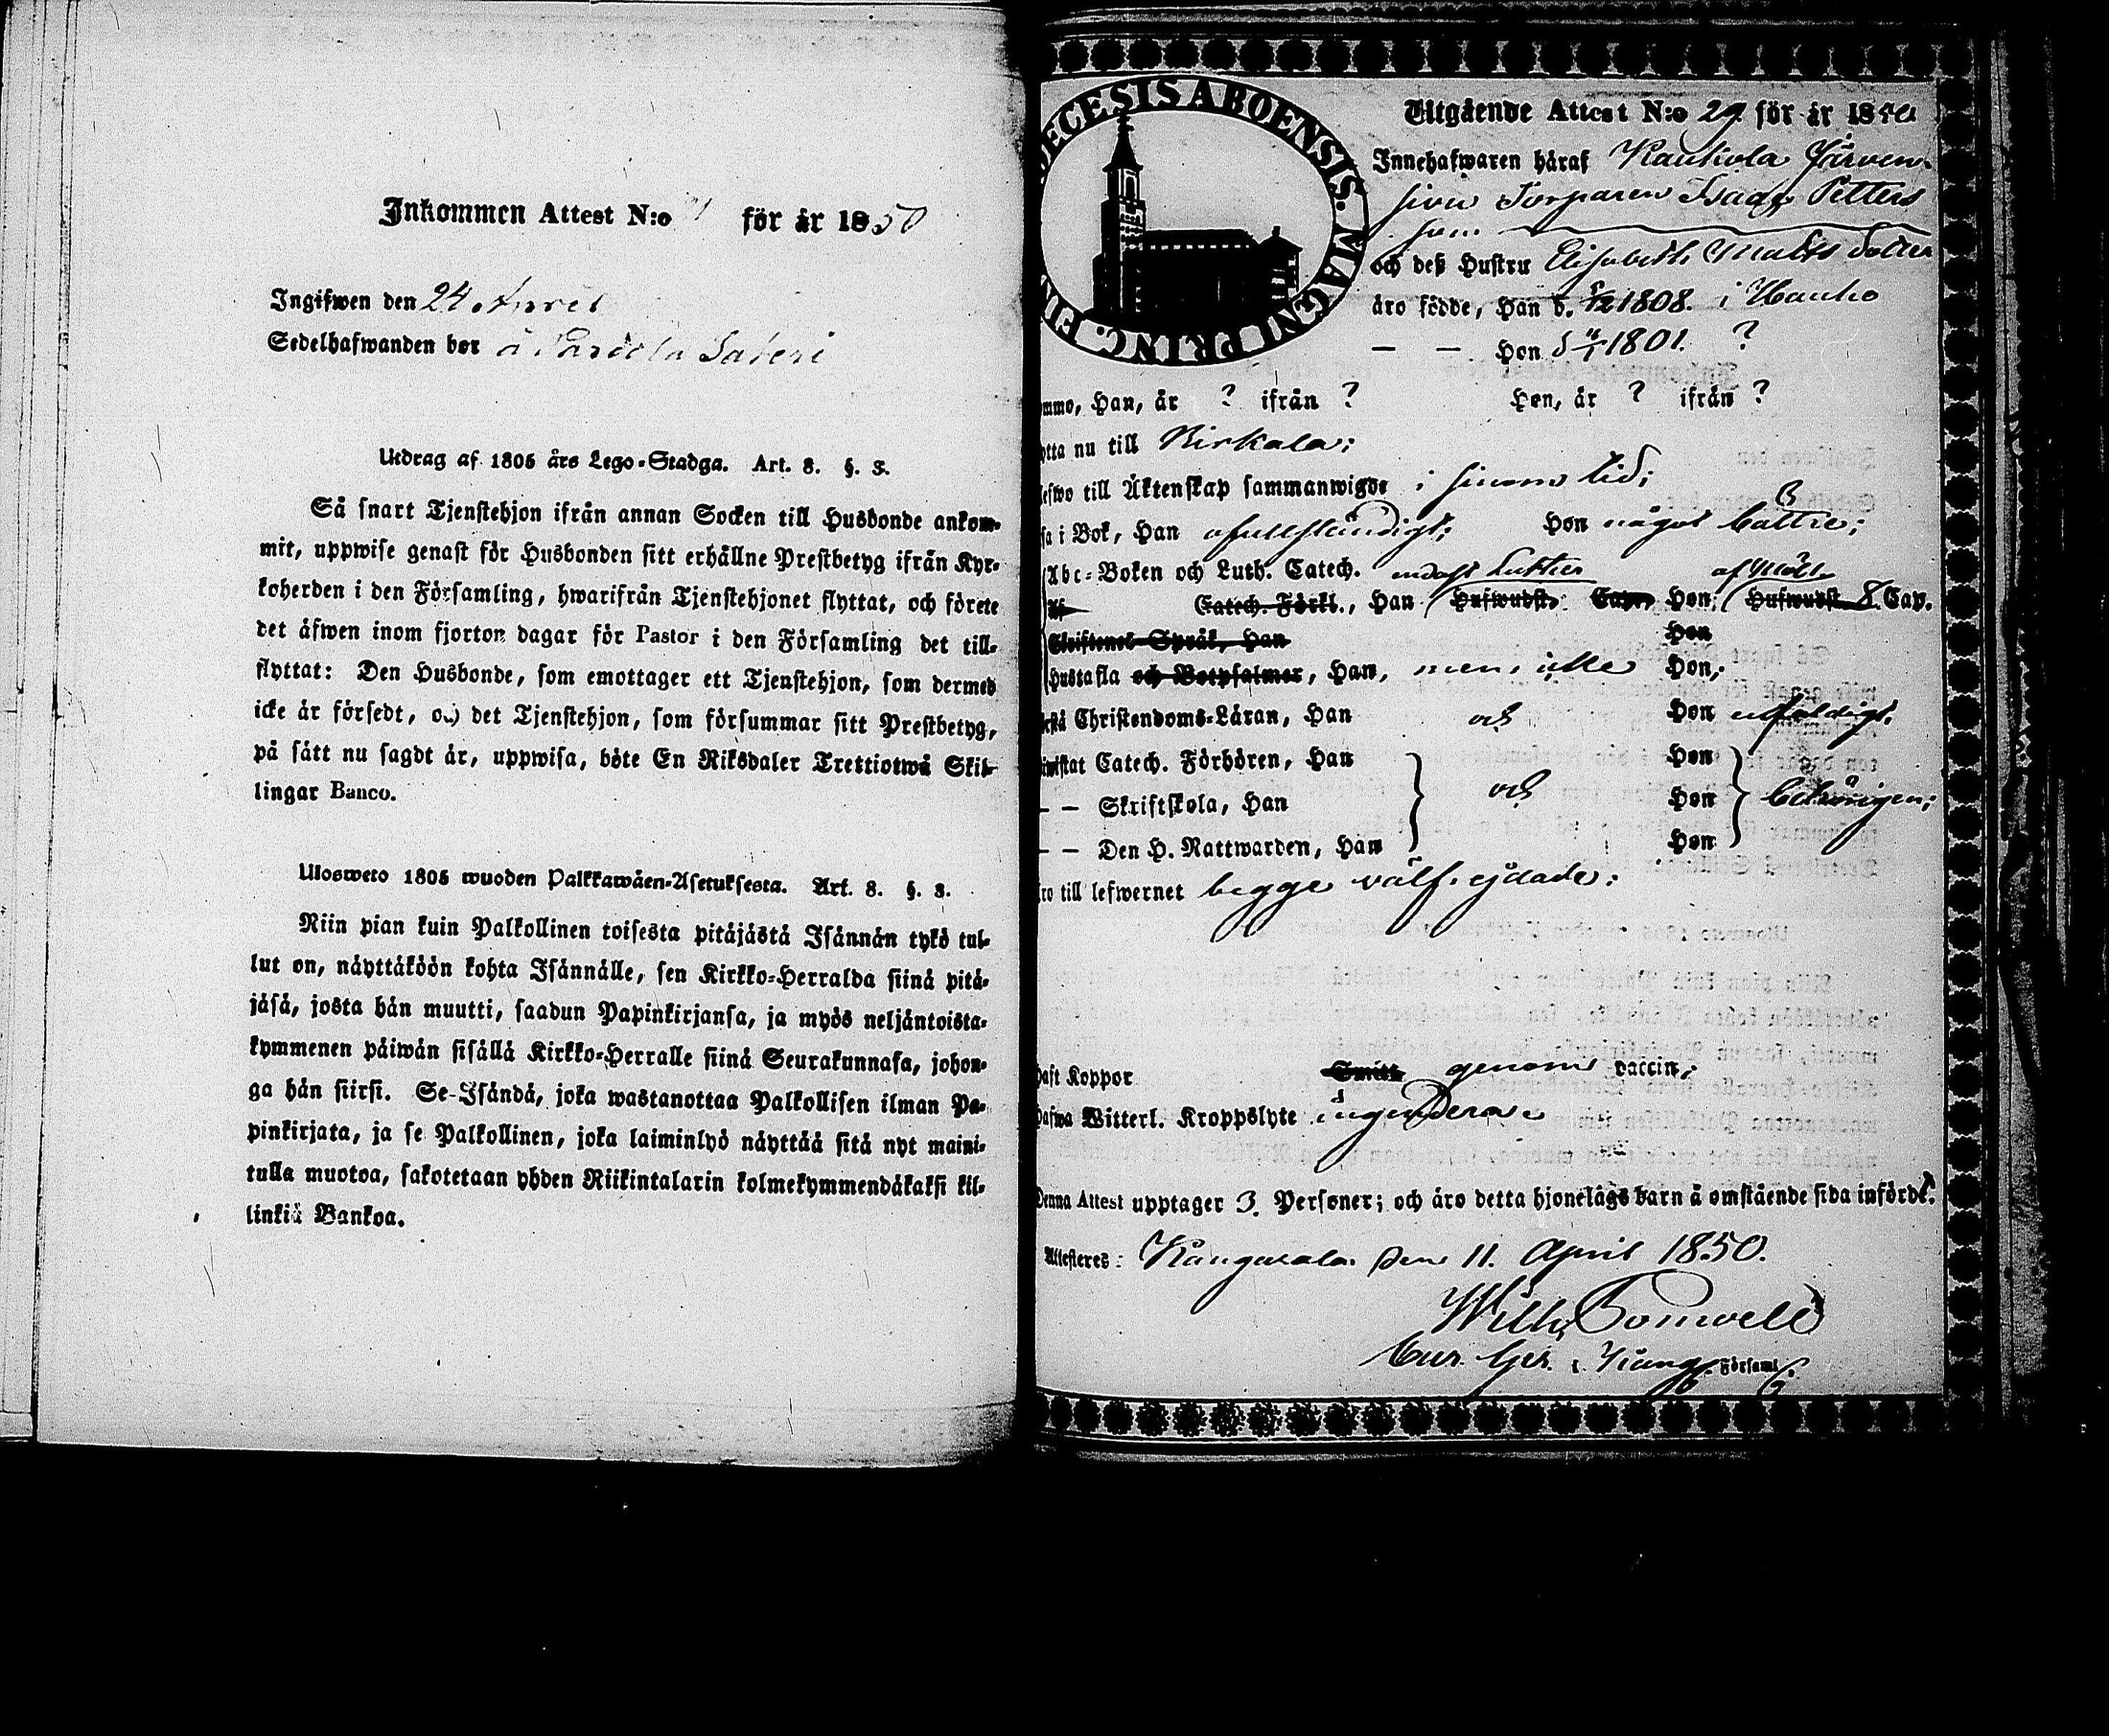 Inkommen Attest N:o för år 1850
Ingifwen den 24 April
Sedelhafwanden bor å Sateri
Utdrag af 1805 års Lego-Stadga. Art. 8. §. 3.
Så snart Tjenstehjon ifrån annan Socken till Husbonde ankom-
mit, uppwise genast för Husbonden sitt erhållne Prestbetyg ifrån Kyr-
koherden i den Församling, hwarifrån Tjenstehjonet flyttat, och förete
det äfwen inom fjorton dagar för Pastor i den Församling det till-
flyttat: Den Husbonde, som emottager ett Tjenstehjon, som dermed
icke är försedt, och det Tjenstehjon, som försummar sitt Prestbetyg,
på sätt nu sagdt är, uppwisa, böte En Riksdaler Trettiotwå Skil-
lingar Banco.
Ulosweto 1805 wuoden Palkkawäen-Asetuksesta. Art. 8. §. 3.
Niin pian kuin Palkollinen toisesta pitäjästä Isännän tykö tul-
lut on, näyttäköön kohta Isännälle, sen Kirkko-Herralda siinä pitä-
jäsä, josta hän muutti, saadun Papinkirjansa, ja myös neljäntoista-
kymmenen päiwän sisällä Kirkko-Herralle siinä Seurakunnasa, johon-
ga hän siirsi. Se-Isändä, joka wastanottaa Palkollisen ilman Pa-
pinkirjata, ja se Palkollinen, joka laiminlyö näyttää sitä nyt maini-
tulla muotoa, sakotetaan yhden Riikintalarin kolmekymmendäkaksi kil-
linkiä Bankoa.
DECESIS ABOENSIS. MAGNI PRINC. FIN
Utgående Attest N:o 29 för år 1850
Innehafwaren häraf Kautiola Järven-
sivu Torparen Isaac Petters
son
och deß Hustru Elisabeth Matts dotter
äro födde, Han d. 5/12 1808. i Hauho
— — Hon d 4/1 1801. ?
ommo, Han, år ? ifrån ? Hon, år ? ifrån ?
ytta nu till Birkala;
lefwo till Äktenskap sammanwigde i sinom tid;
sa i Bok, Han ofullständigt; Hon något bättre;
Abc-Boken och Luth. Catech. endast Luther af Möll.
Af Catech. Förkl., Han (Hufwudst. Cap. Hon, (Hufwudst. 8. Cap.
Skriftenes Språk, Han Hon
Hustafla och Botpsalmer, Han, men icke Hon;
rstå Christendoms-Läran, Han och Hon enfaldigt.
iwistat Catech. Förhören, Han Hon
— — Skriftskola, Han och Hon behörigen;
— — Den H. Nattwarden, Han Hon
ro till lefwernet begge välfrejdade:
haft Koppor Smitt genom vaccin;
hafwa Witterl. Kroppslyte ingendera:
Denna Attest upptager 3. Personer; och äro detta hjonelags barn å omstående sida införde.
Attesteres: Kangasala den 11. April 1850.
Wilh
Församl